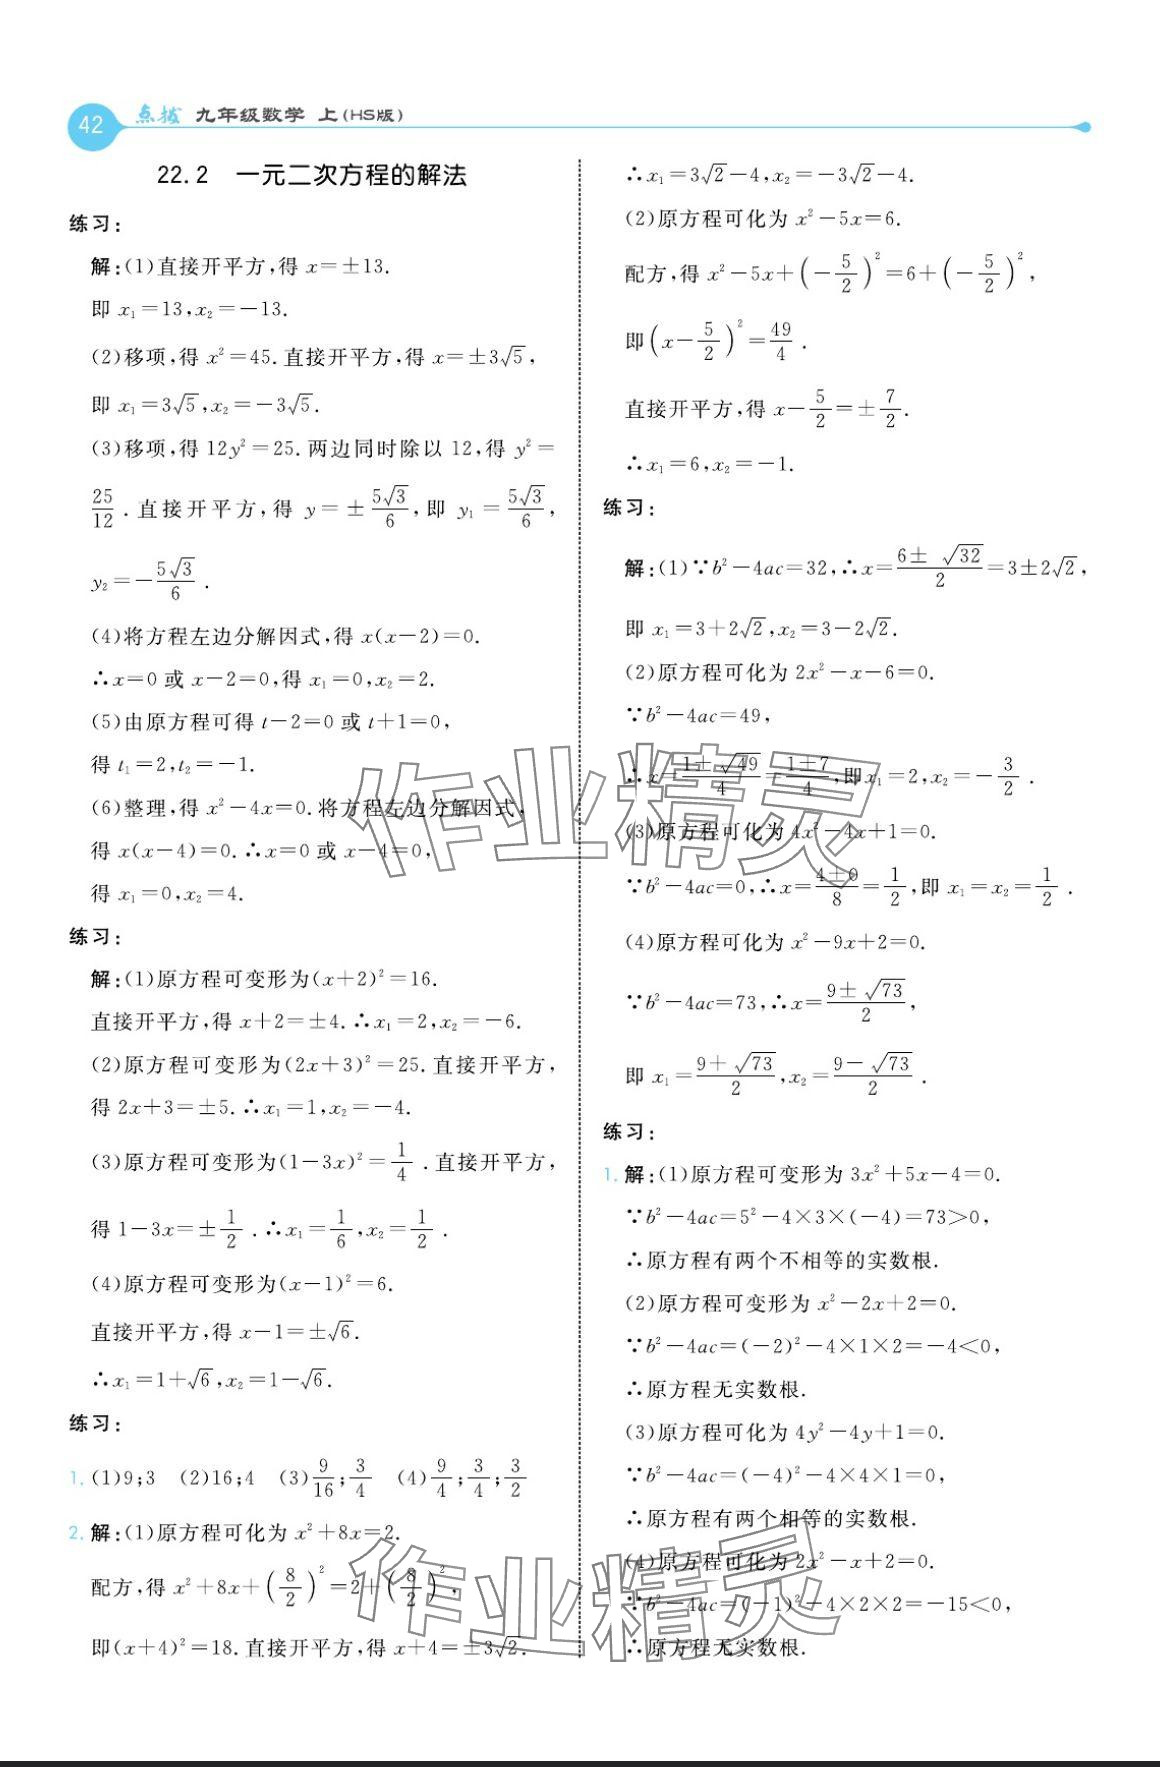 42 点拨 九年级数学 上(HS版)
22.2 一元二次方程的解法
练习:
解:(1)直接开平方,得 x=±13.
即 x₁=13,x₂=−13.
(2)移项,得 x²=45.直接开平方,得 x=±3√5,
即 x₁=3√5,x₂=−3√5.
(3)移项,得 12y²=25.两边同时除以 12,得 y²=
25/12.直接开平方,得 y=±5√3/6,即 y₁=5√3/6,
y₂=−5√3/6.
(4)将方程左边分解因式,得 x(x−2)=0.
∴x=0 或 x−2=0,得 x₁=0,x₂=2.
(5)由原方程可得 t−2=0 或 t+1=0,
得 t₁=2,t₂=−1.
(6)整理,得 x²−4x=0.将方程左边分解因式,
得 x(x−4)=0.∴x=0 或 x−4=0,
得 x₁=0,x₂=4.
练习:
解:(1)原方程可变形为(x+2)²=16.
直接开平方,得 x+2=±4.∴x₁=2,x₂=−6.
(2)原方程可变形为(2x+3)²=25.直接开平方,
得 2x+3=±5.∴x₁=1,x₂=−4.
(3)原方程可变形为(1−3x)²=1/4.直接开平方,
得 1−3x=±1/2.∴x₁=1/6,x₂=1/2.
(4)原方程可变形为(x−1)²=6.
直接开平方,得 x−1=±√6.
∴x₁=1+√6,x₂=1−√6.
练习:
1.(1)9;3 (2)16;4 (3)9/16;3/4 (4)9/4;3/4;3/2
2.解:(1)原方程可化为 x²+8x=2.
配方,得 x²+8x+(8/2)²=2+(8/2)²,
即(x+4)²=18.直接开平方,得 x+4=±3√2.
∴x₁=3√2−4,x₂=−3√2−4.
(2)原方程可化为 x²−5x=6.
配方,得 x²−5x+(−5/2)²=6+(−5/2)²,
即(x−5/2)²=49/4.
直接开平方,得 x−5/2=±7/2.
∴x₁=6,x₂=−1.
练习:
解:(1)∵b²−4ac=32,∴x=(6±√32)/2=3±2√2,
即 x₁=3+2√2,x₂=3−2√2.
(2)原方程可化为 2x²−x−6=0.
∵b²−4ac=49,
∴x=(1±√49)/4=(1±7)/4,即x₁=2,x₂=−3/2.
(3)原方程可化为 4x²−4x+1=0.
∵b²−4ac=0,∴x=(4±0)/8=1/2,即 x₁=x₂=1/2.
(4)原方程可化为 x²−9x+2=0.
∵b²−4ac=73,∴x=(9±√73)/2,
即 x₁=(9+√73)/2,x₂=(9−√73)/2.
练习:
1.解:(1)原方程可变形为 3x²+5x−4=0.
∵b²−4ac=5²−4×3×(−4)=73>0,
∴原方程有两个不相等的实数根.
(2)原方程可变形为 x²−2x+2=0.
∵b²−4ac=(−2)²−4×1×2=−4<0,
∴原方程无实数根.
(3)原方程可化为 4y²−4y+1=0.
∵b²−4ac=(−4)²−4×4×1=0,
∴原方程有两个相等的实数根.
(4)原方程可化为 2x²−x+2=0.
∵b²−4ac=(−1)²−4×2×2=−15<0,
∴原方程无实数根.
作业精灵
作业精灵